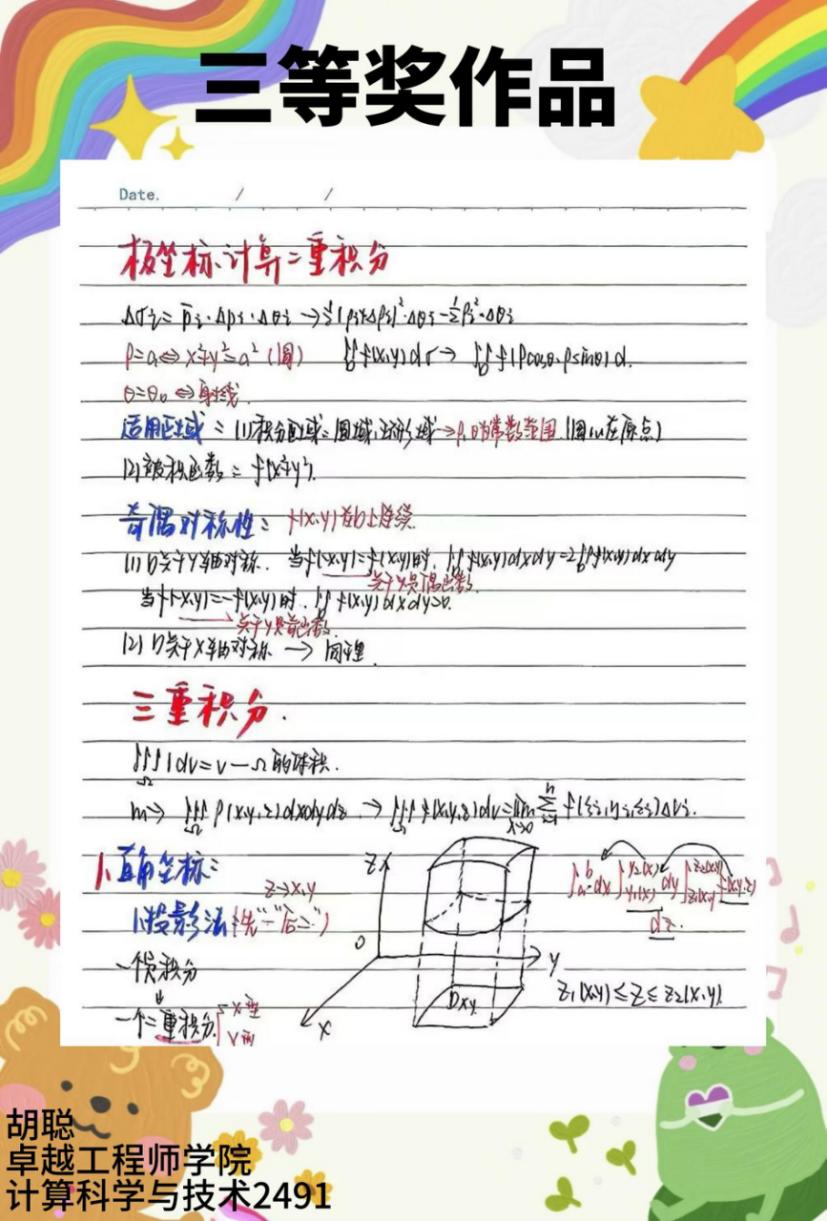 三等奖作品
Date. / /
极坐标计算二重积分
Δσi = ρ̄i·Δρi·Δθi → ½(ρi+Δρi)²·Δθi - ½ρi²·Δθi
ρ=a ⇔ x²+y²=a² (圆) ∬D f(x,y)dσ → ∬D f(ρcosθ, ρsinθ)d.
θ=θ0 ⇔ 射线.
适用区域: (1)积分区域: 圆域, 环形域 → ρ,θ为常数范围 (圆心在原点)
(2)被积函数: f(x²+y²).
奇偶对称性: f(x,y)在D上连续.
(1) D关于Y轴对称. 当f(-x,y)=f(x,y)时, ∬D f(x,y)dxdy=2∬D f(x,y)dxdy
→ 关于x是偶函数.
当f(-x,y)=-f(x,y)时, ∬D f(x,y)dxdy=0.
→ 关于x是奇函数.
(2) D关于X轴对称 → 同理.
三重积分.
∭Ω 1dv=v — Ω的体积.
m ⇒ ∭Ω ρ(x,y,z)dxdydz → ∭Ω f(x,y,z)dv=lim λ→0 ∑ i=1 n f(ξi,ηi,ζi)Δvi.
1. 直角坐标:
1.投影法 (先"一"后"二")
z→x,y
一个定积分
↓
一个二重积分 { X型
Y型
z
o
y
x
Dxy
∫a b dx ∫y1(x) y2(x) dy ∫z1(x,y) z2(x,y) f(x,y,z)
dz.
z1(x,y)≤z≤z2(x,y)
胡聪
卓越工程师学院
计算科学与技术2491